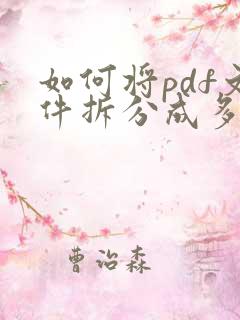 如何将pdf文
件拆分成多
曹诒森